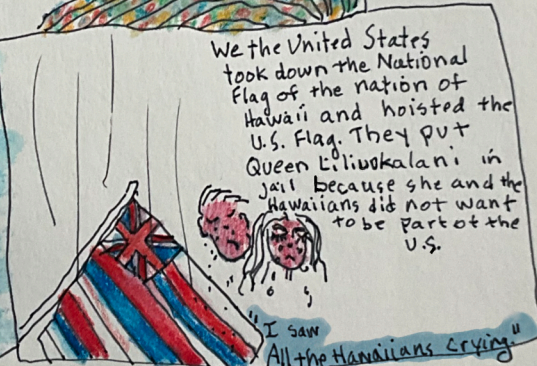 We the United States
took down the National
Flag of the nation of
Hawaii and hoisted the
U.S. Flag. They put
Queen Liliuokalani in
jail because she and the
Hawaiians did not want
to be part of the
U.S.
"I saw
All the Hawaiians crying."